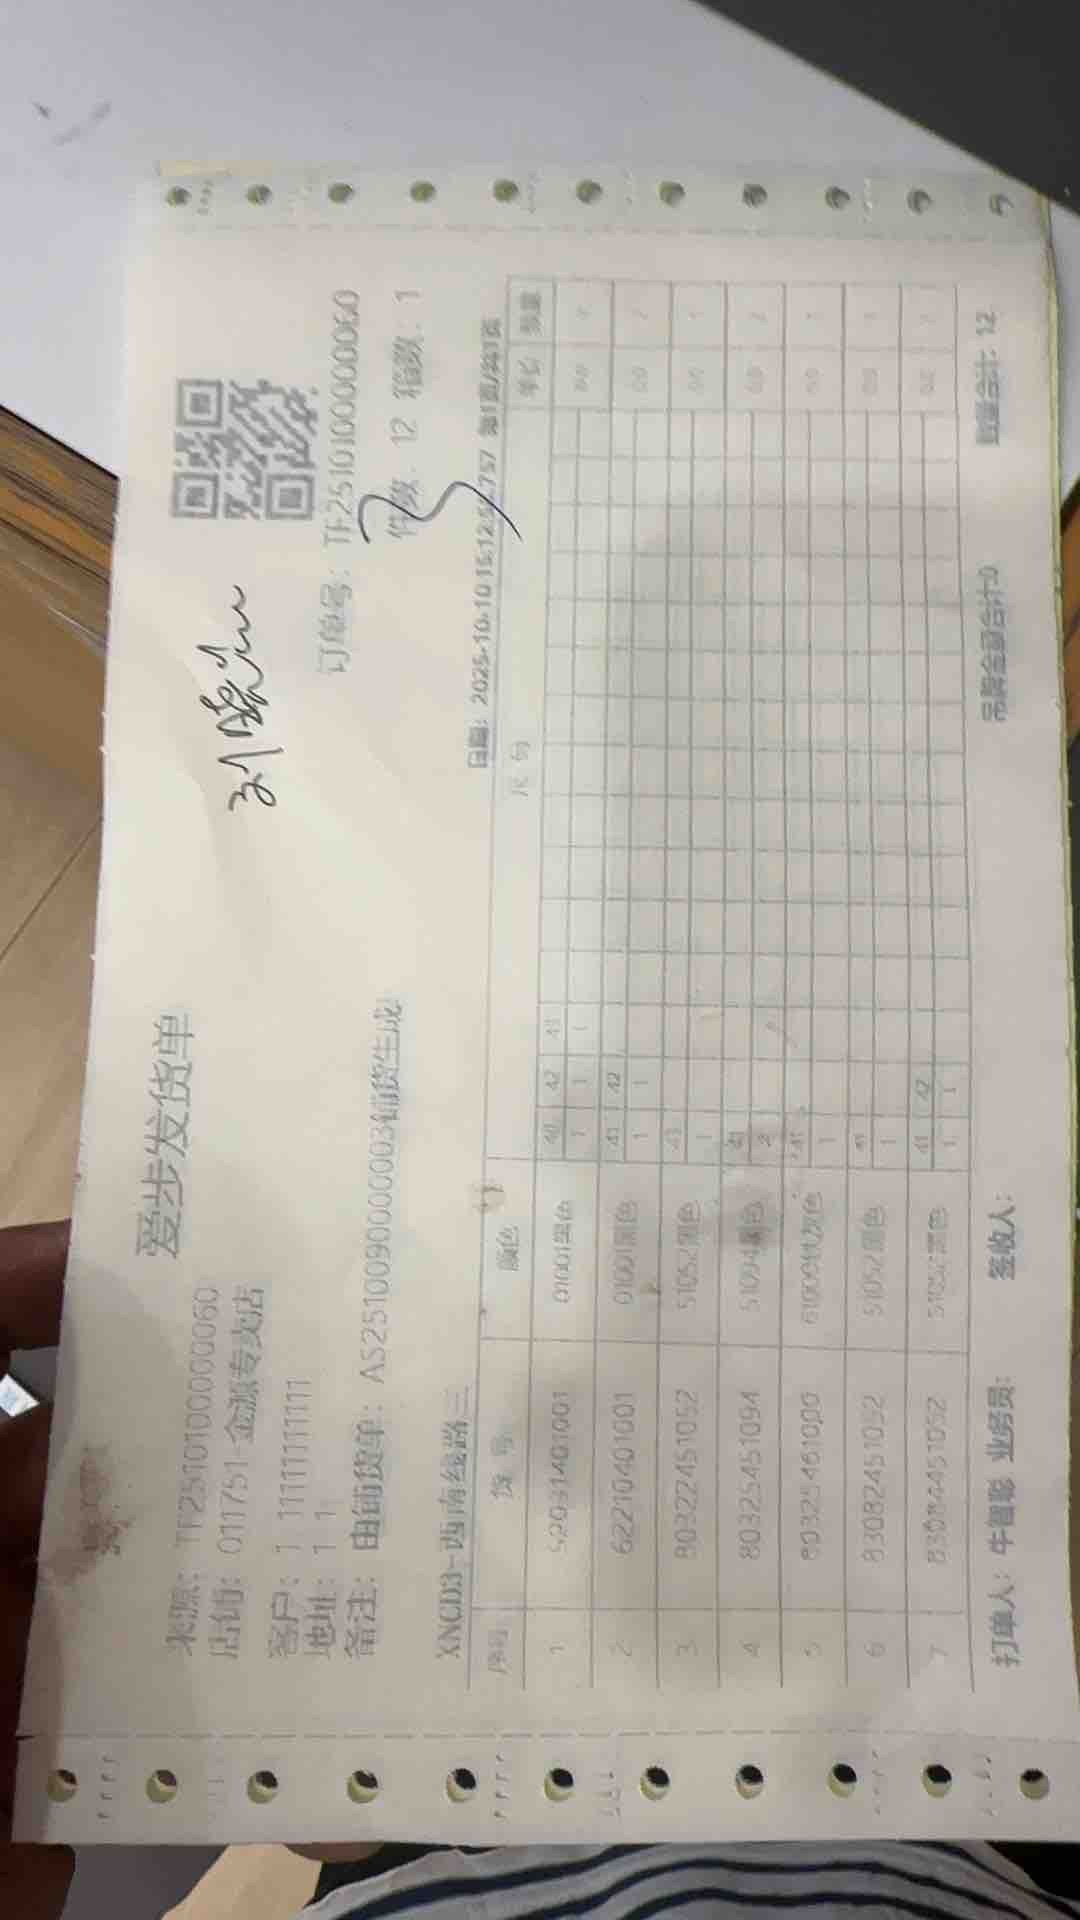 爱步发货单
来源: TF25101000000060
店铺: 011751-金源专卖店
客户: 1 11111111111
地址: 1 1
备注: 由铺货单: AS25100900000003铺货生成
订单号: TF25101000000060
件数: 12 箱数: 1
XNCD3-西南线路三
日期: 2025-10-10 15:12: 757 第1页/共1页
序号 货 号 颜色 尺 码 单价 数量
40 42 43
1 52031401001 01001黑色 1 1 1 0.0
41 42
2 62210401001 01001黑色 1 1 0.0 2
43
3 80322451052 51052黑色 1 0.0 1
41
4 80325451094 51094黑色 2 0.0 2
41
5 80325461000 1 0.0 1
41
6 83082451052 51052黑色 1 0.0 1
41 42
7 83084451052 51052黑色 1 1 0.0
打单人: 牛智彩 业务员: 签收人: 吊牌金额合计:0 数量合计: 12